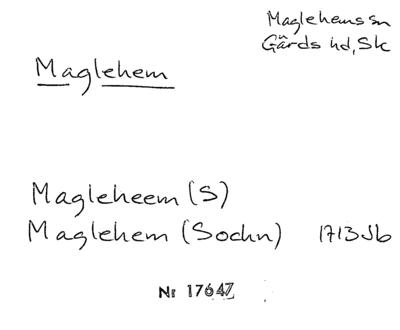 Maglehems sn
Gärds hd, Sk
Maglehem
Magleheem (S)
Maglehem (Sochn) 1713 Jb
Nr 17647